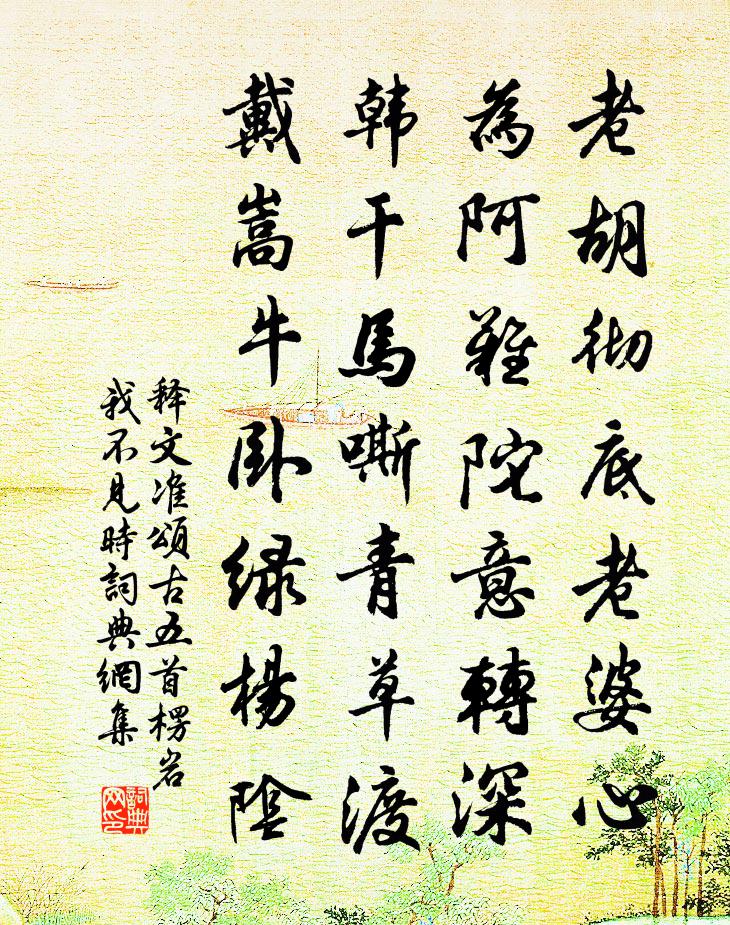 老胡彻底老婆心
為阿難陀意轉深
韩干馬嘶青草渡
戴嵩牛卧绿楊陰
释文准頌古五首楞岩
我不見時詞典網集
詞典网印